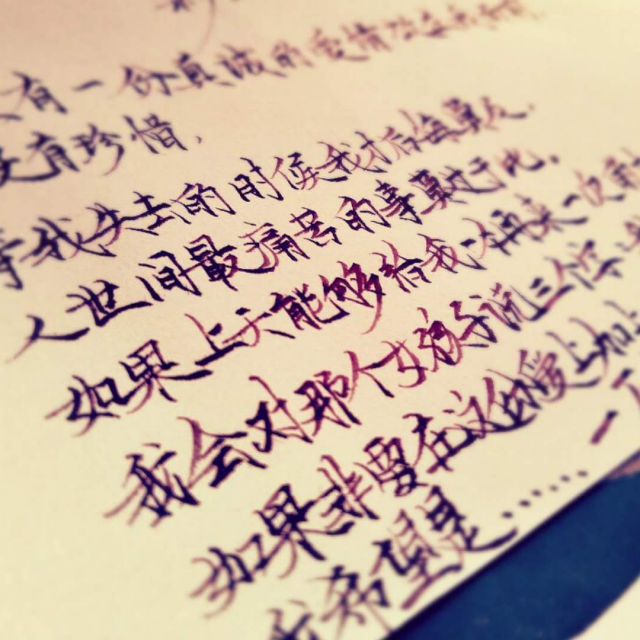 有一份真诚的爱情放在
没有珍惜，
等我失去的时候我才后悔莫及。
人世间最痛苦的事莫过于此。
如果上天能够给我一次再来一次的
我会对那个女孩子说三个字
如果非要在这份爱上加上
我希望是……
一万